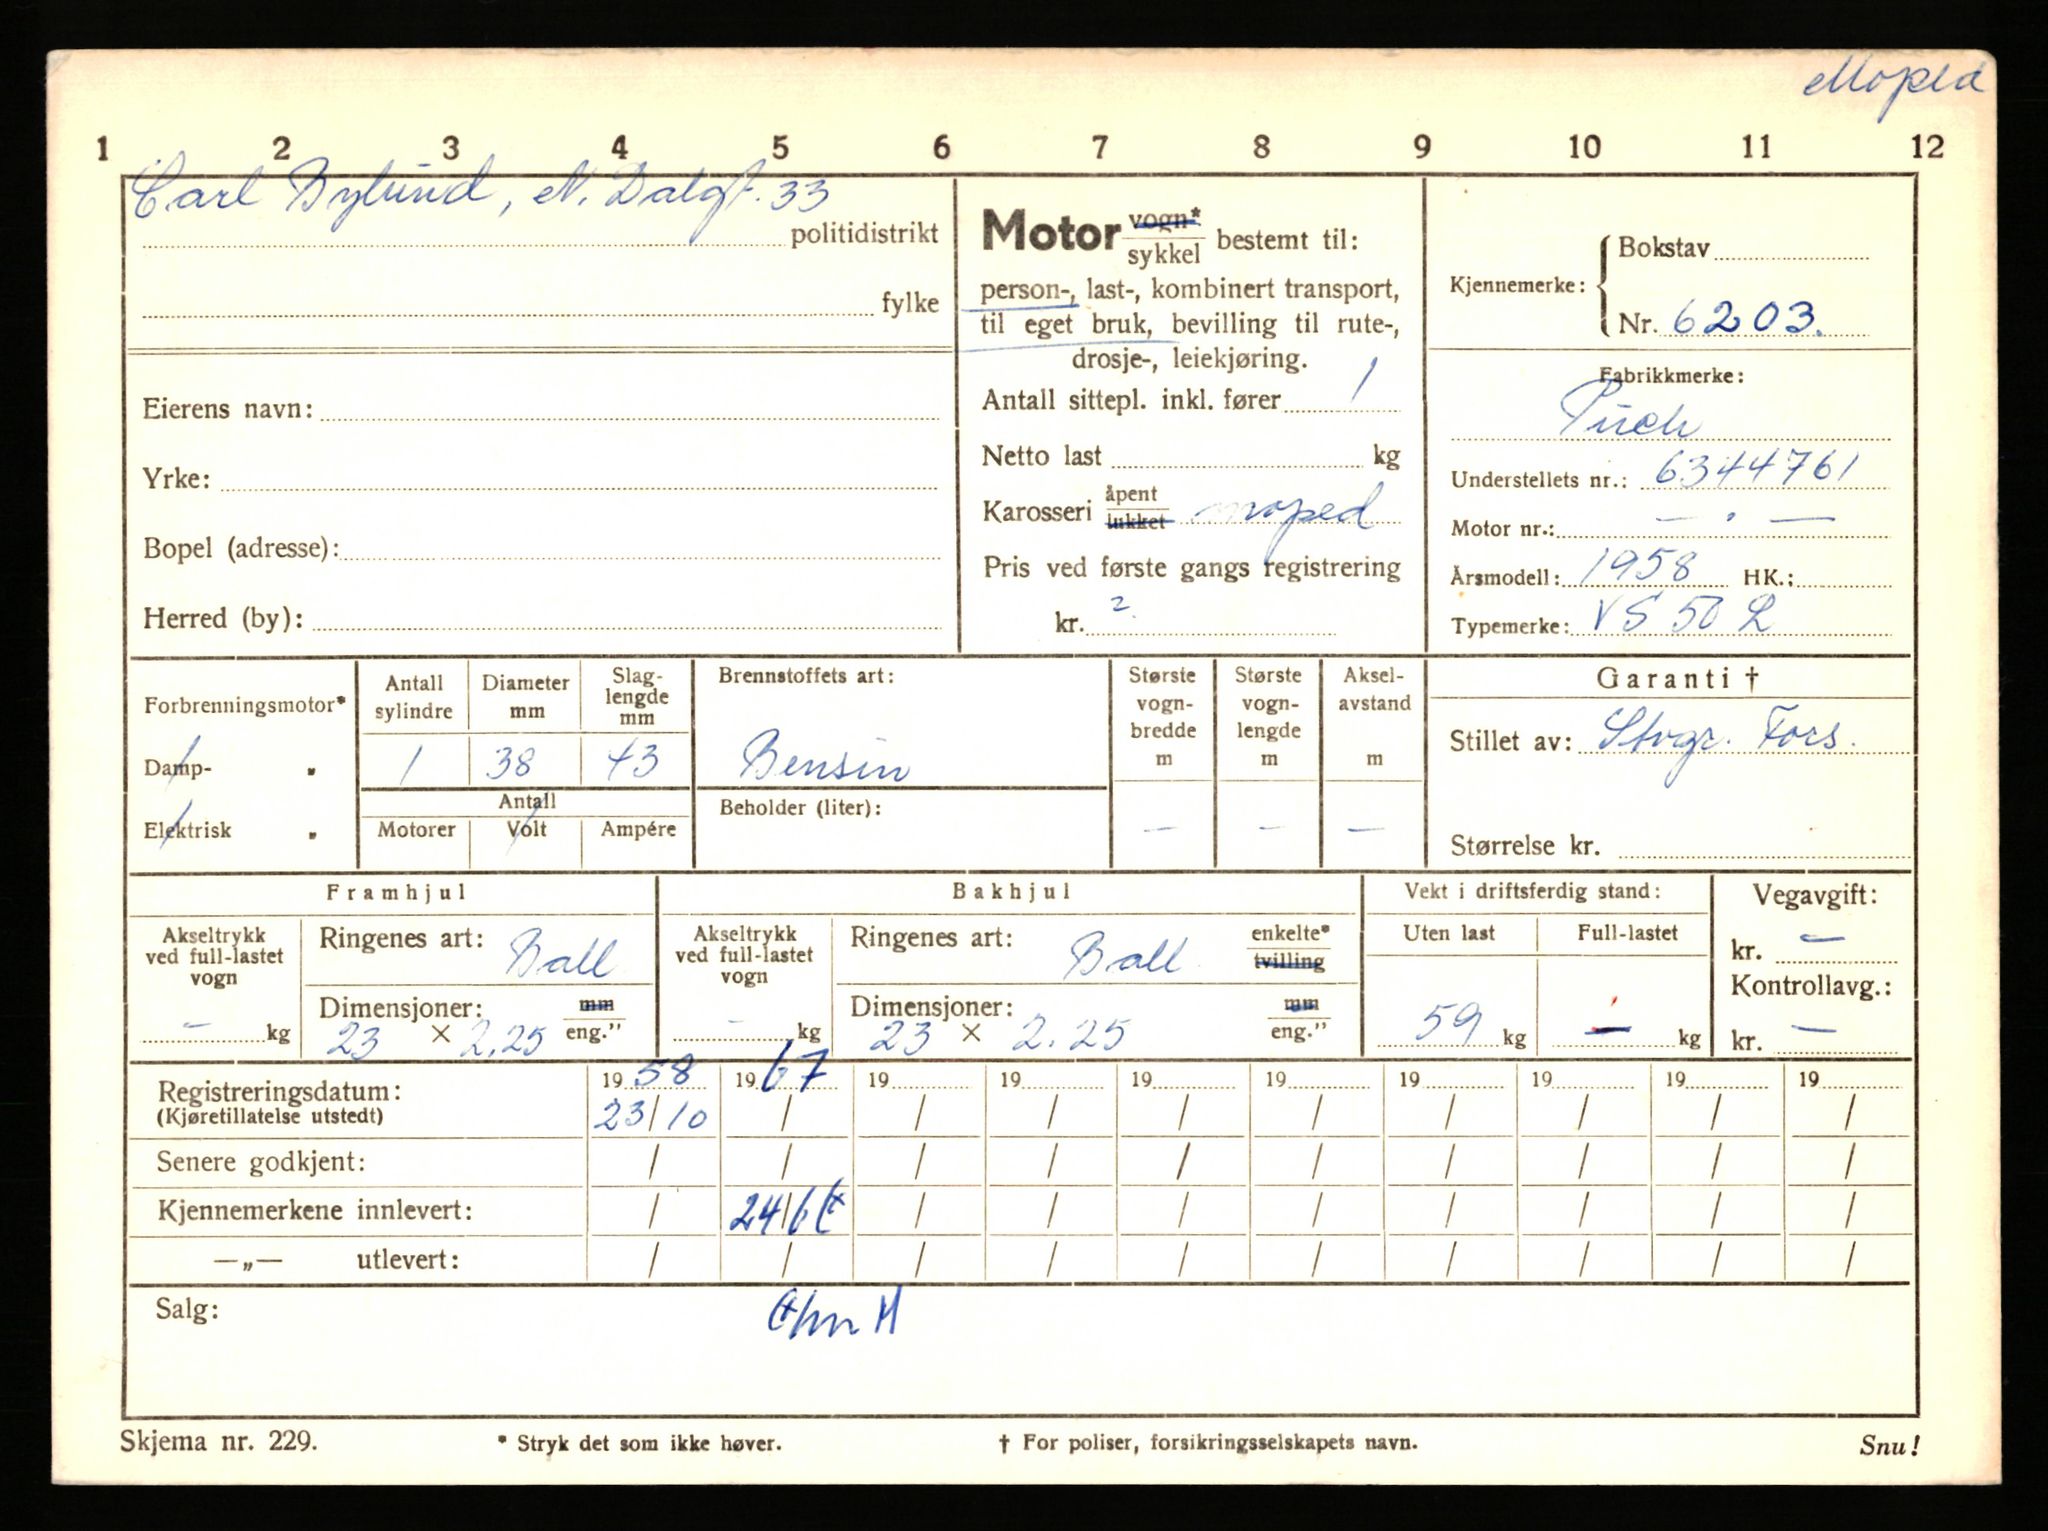 Moped
1 2 3 4 5 6 7 8 9 10 11 12
Carl Bylund, N. Dalgt. 33
politidistrikt
fylke
Eierens navn:
Yrke:
Bopel (adresse):
Herred (by):
Motor vogn* sykkel bestemt til:
person-, last-, kombinert transport,
til eget bruk, bevilling til rute-,
drosje-, leiekjøring.
Antall sittepl. inkl. fører 1
Netto last kg
Karosseri åpent lukket moped
Pris ved første gangs registrering
kr. 2.
Kjennemerke: Bokstav
Nr. 6203.
Fabrikkmerke:
Puch
Understellets nr.: 6344761
Motor nr.: — " —
Årsmodell: 1958 HK.:
Typemerke: VS 50 L
Forbrenningsmotor*
Damp- "
Elektrisk "
Antall sylindre Diameter mm Slag-lengde mm
1 38 43
Antall
Motorer Volt Ampére
Brennstoffets art:
Bensin
Beholder (liter):
Største vogn-bredde m
Største vogn-lengde m
Aksel-avstand m
— — —
Garanti †
Stillet av: Stvgr. Fors.
Størrelse kr.
Framhjul
Akseltrykk ved full-lastet vogn
— kg
Ringenes art: Ball
Dimensjoner: mm
23 × 2.25 eng."
Bakhjul
Akseltrykk ved full-lastet vogn
— kg
Ringenes art: Ball enkelte* tvilling
Dimensjoner: mm
23 × 2.25 eng."
Vekt i driftsferdig stand:
Uten last Full-lastet
59 kg — kg
Vegavgift:
kr. —
Kontrollavg.:
kr. —
Registreringsdatum: 19 58 19 67 19 19 19 19 19 19 19 19
(Kjøretillatelse utstedt) 23/10 / / / / / / / / /
Senere godkjent: / / / / / / / / / /
Kjennemerkene innlevert: / 24/6 / / / / / / / /
—„— utlevert: / / / / / / / / / /
Salg:
Skjema nr. 229.
* Stryk det som ikke høver.
† For poliser, forsikringsselskapets navn.
Snu!